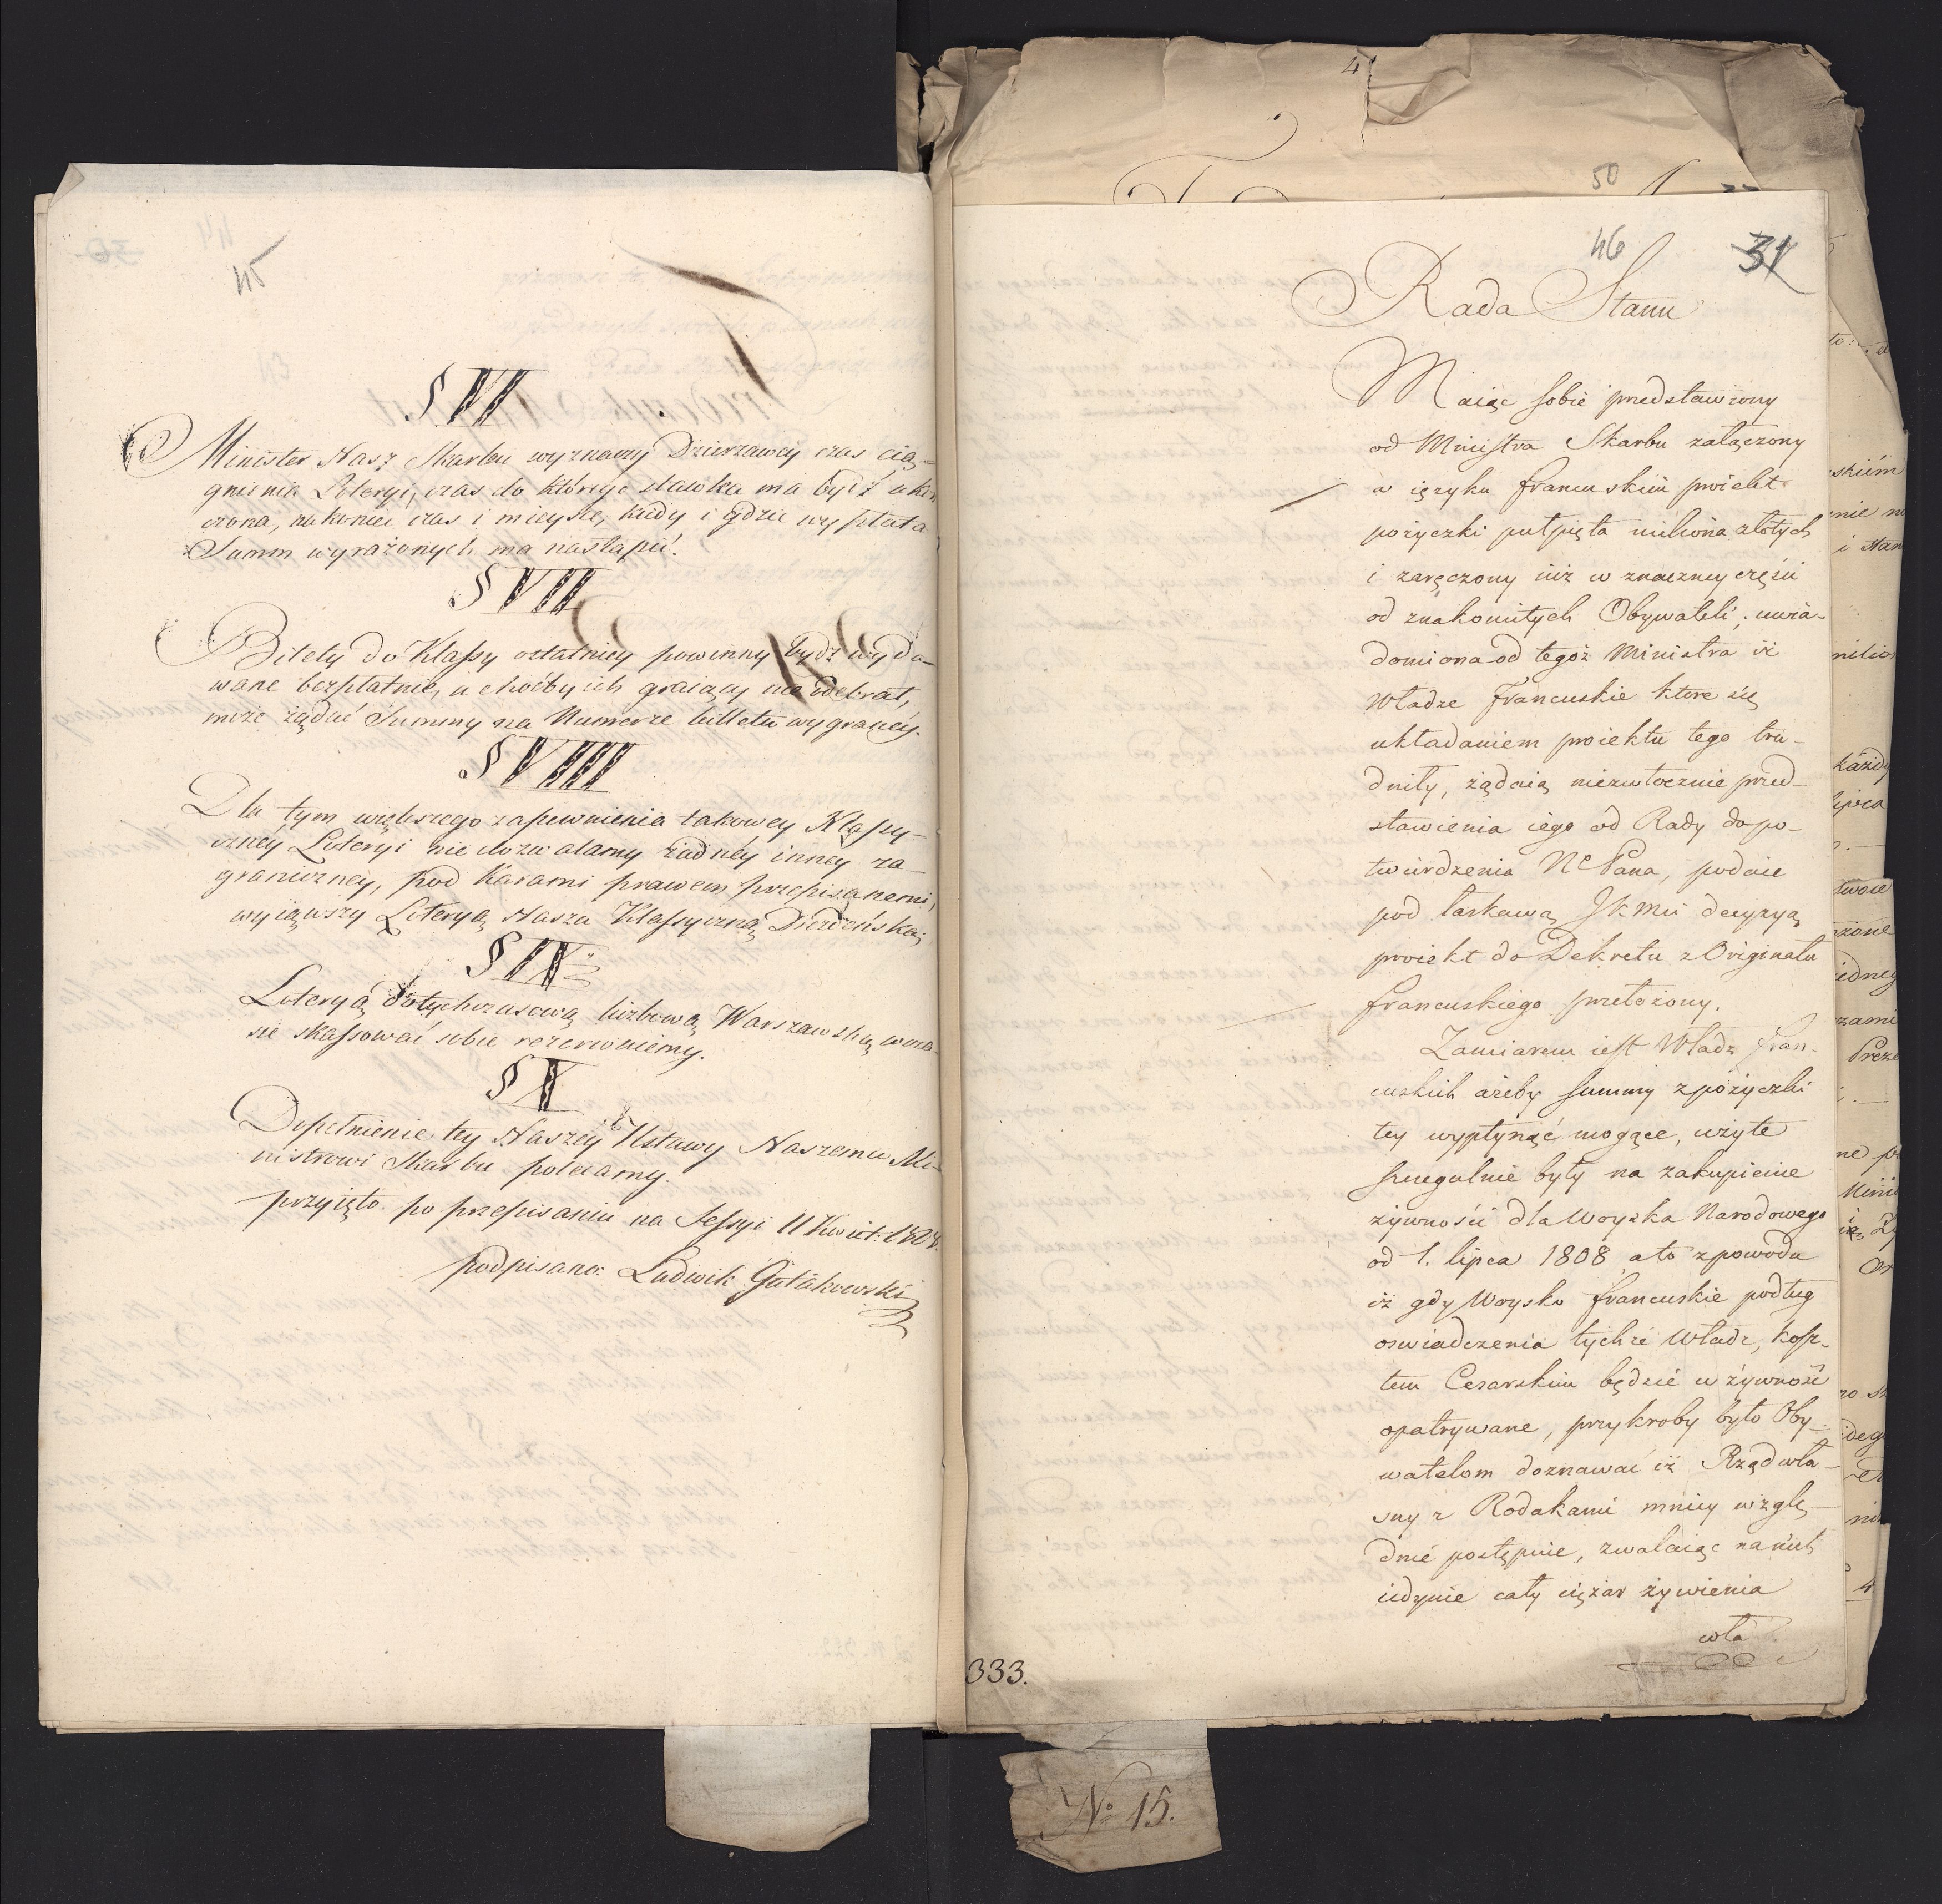 45
§ VI
Minister Nasz Skarbu wyznaczy Dzierzawcy czas cią-
gnienia Loteryi, czas do którego stawka ma bydź ukoń
czona, nakoniec czas i mieysce, kiedy i gdzie wypłata
Summ wyrażonych ma nastąpić.
§ VII
Bilety do Klassy ostatniey powinny bydź wyda-
wane bezpłatnie, a choćby ich graiący nie odebrał,
może żądać Summy na Numerze billetu wygraney.
§ VIIII
Dla tym większego zapewnienia takowey Klassy-
czney Loteryi nie dozwalamy żadney inney za-
graniczney, pod karami prawem przepisanemi,
wyiąwszy Loteryą Nasza Klassyczną Drezdeńską;
§ IX
Loteryą dotychczasową liczbową Warszawską w cza-
sie skassować sobie rezerwuiemy.
§ X
Dopełnienie tey Naszey Ustawy Naszemu Mi-
nistrowi Skarbu polecamy.
przyięto po przepisaniu na Sessyi 11 Kwiet: 1808.
podpisano: Ludwik Gutakowski
4
50
46
31
Rada Stanu
Maiąc sobie przedstawiony
od Ministra Skarbu załączony
w ięzyku francuskim proiekt
pożyczki pułpięta miliona złotych
i zaręczony iuż w znaczney części
od znakomitych Obywateli; uwia-
domiona od tegoż Ministra iż
Władze Francuskie ktore się
układaniem proiektu tego tru-
dniły, żądaią niezwłocznie przed-
stawienia iego od Rady do po-
twierdzenia Nо Pana, podaie
pod łaskawą JKMci decyzyą
proiekt do Dekretu z Originału
francuskiego przełożony.
Zamiarem iest Władz Fran-
cuskich ażeby summy z pożyczki
tey wypłynąć mogące, użyte
szczegulnie były na zakupienie
żywności dla Woyska Narodowego
od 1. lipca 1808 a to z powodu
iż gdy Woysko francuskie podług
oswiadczenia tychże Władz, kosz-
tem Cesarskim będzie w żywność
opatrywane, przykroby było Oby-
watelom doznawać iż Rząd wła-
sny z Rodakami mniey wzglę-
dnie postępuie, zwalaiąc na nich
iedynie cały ciężar żywienia
wła
333.
No 15.